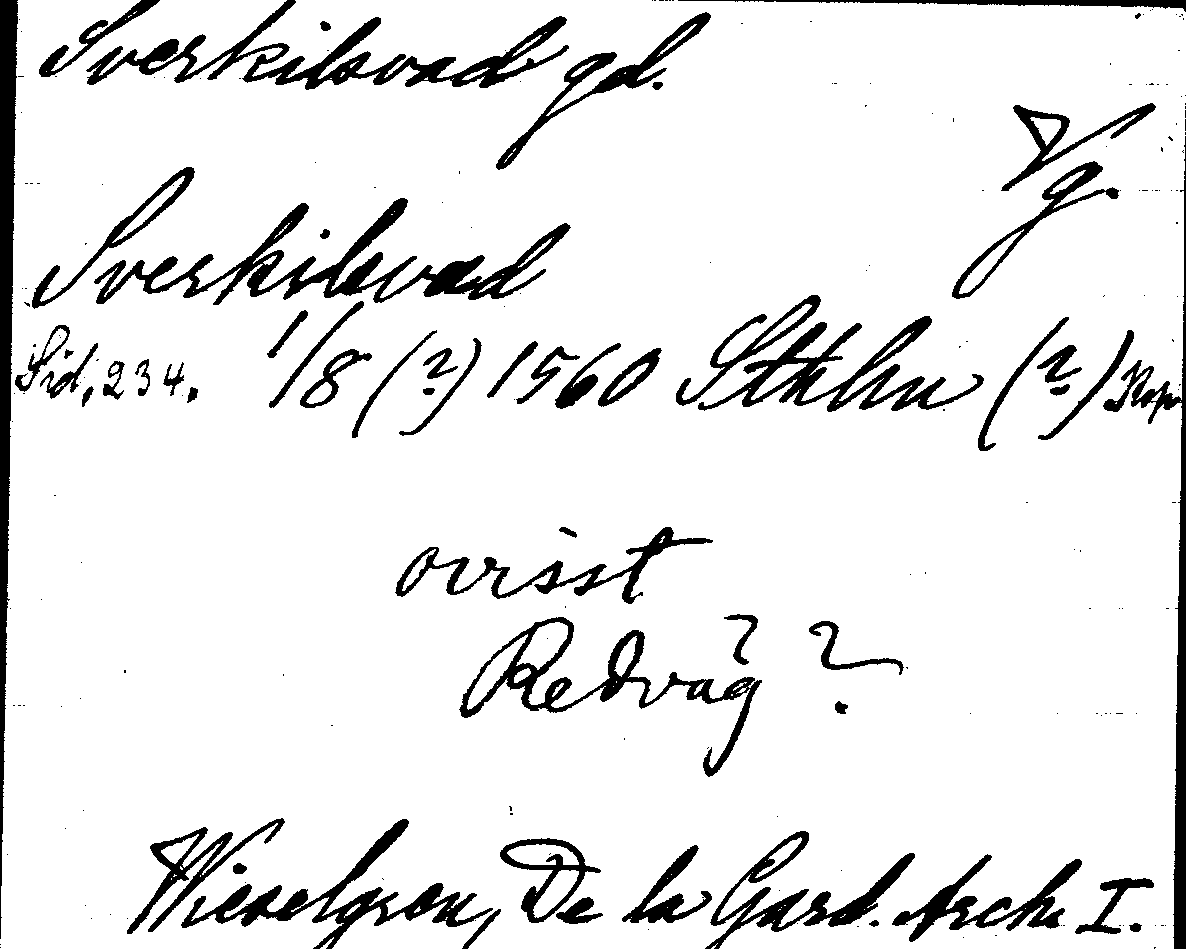 Sverkilsvad gd.
Vg.
Sverkilsvad
Sid. 234. 1/8 (?) 1560 Sthlm (?) Kop
ovisst
Redväg ?
Wieselgren, De la Gard. Arch. I.